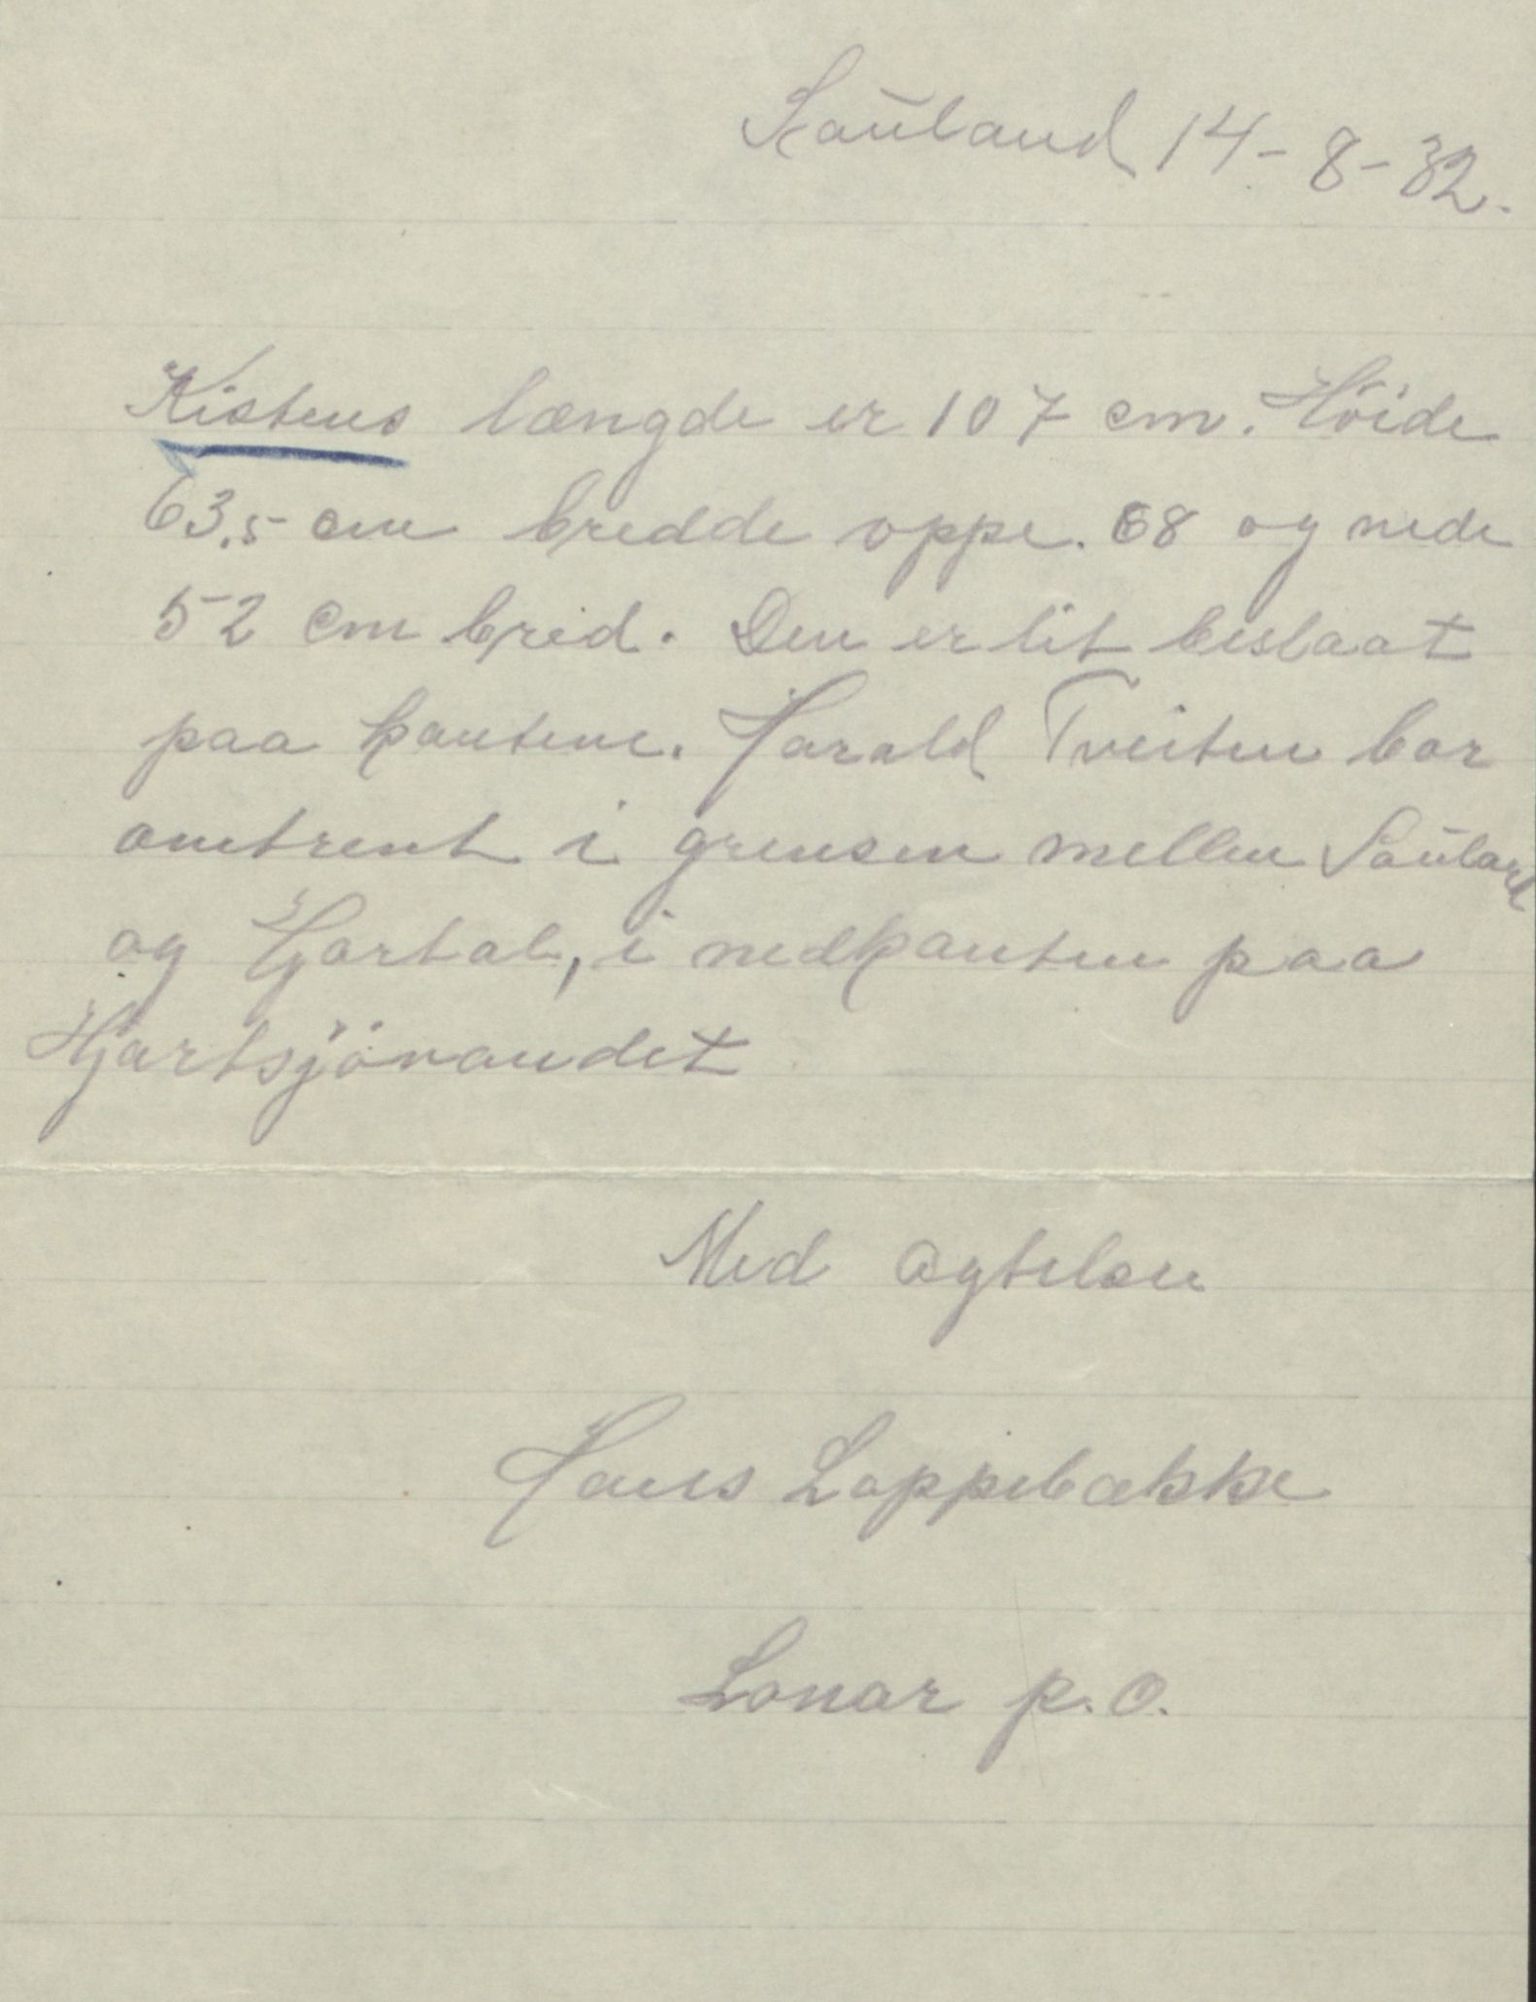 Sauland 14-8-32.
Kistens længde er 107 cm. Høide
63,5 cm bredde oppe. 68 og nede
52 cm breid. Den er lit beslaat
paa kantene. Harald Tveiten bor
omtrent i grensen mellem Sauland
og Hjartal, i nedkanten paa
Hjartsjövandet
Med agtelse
Hans Loppebække
Lonar p.o.